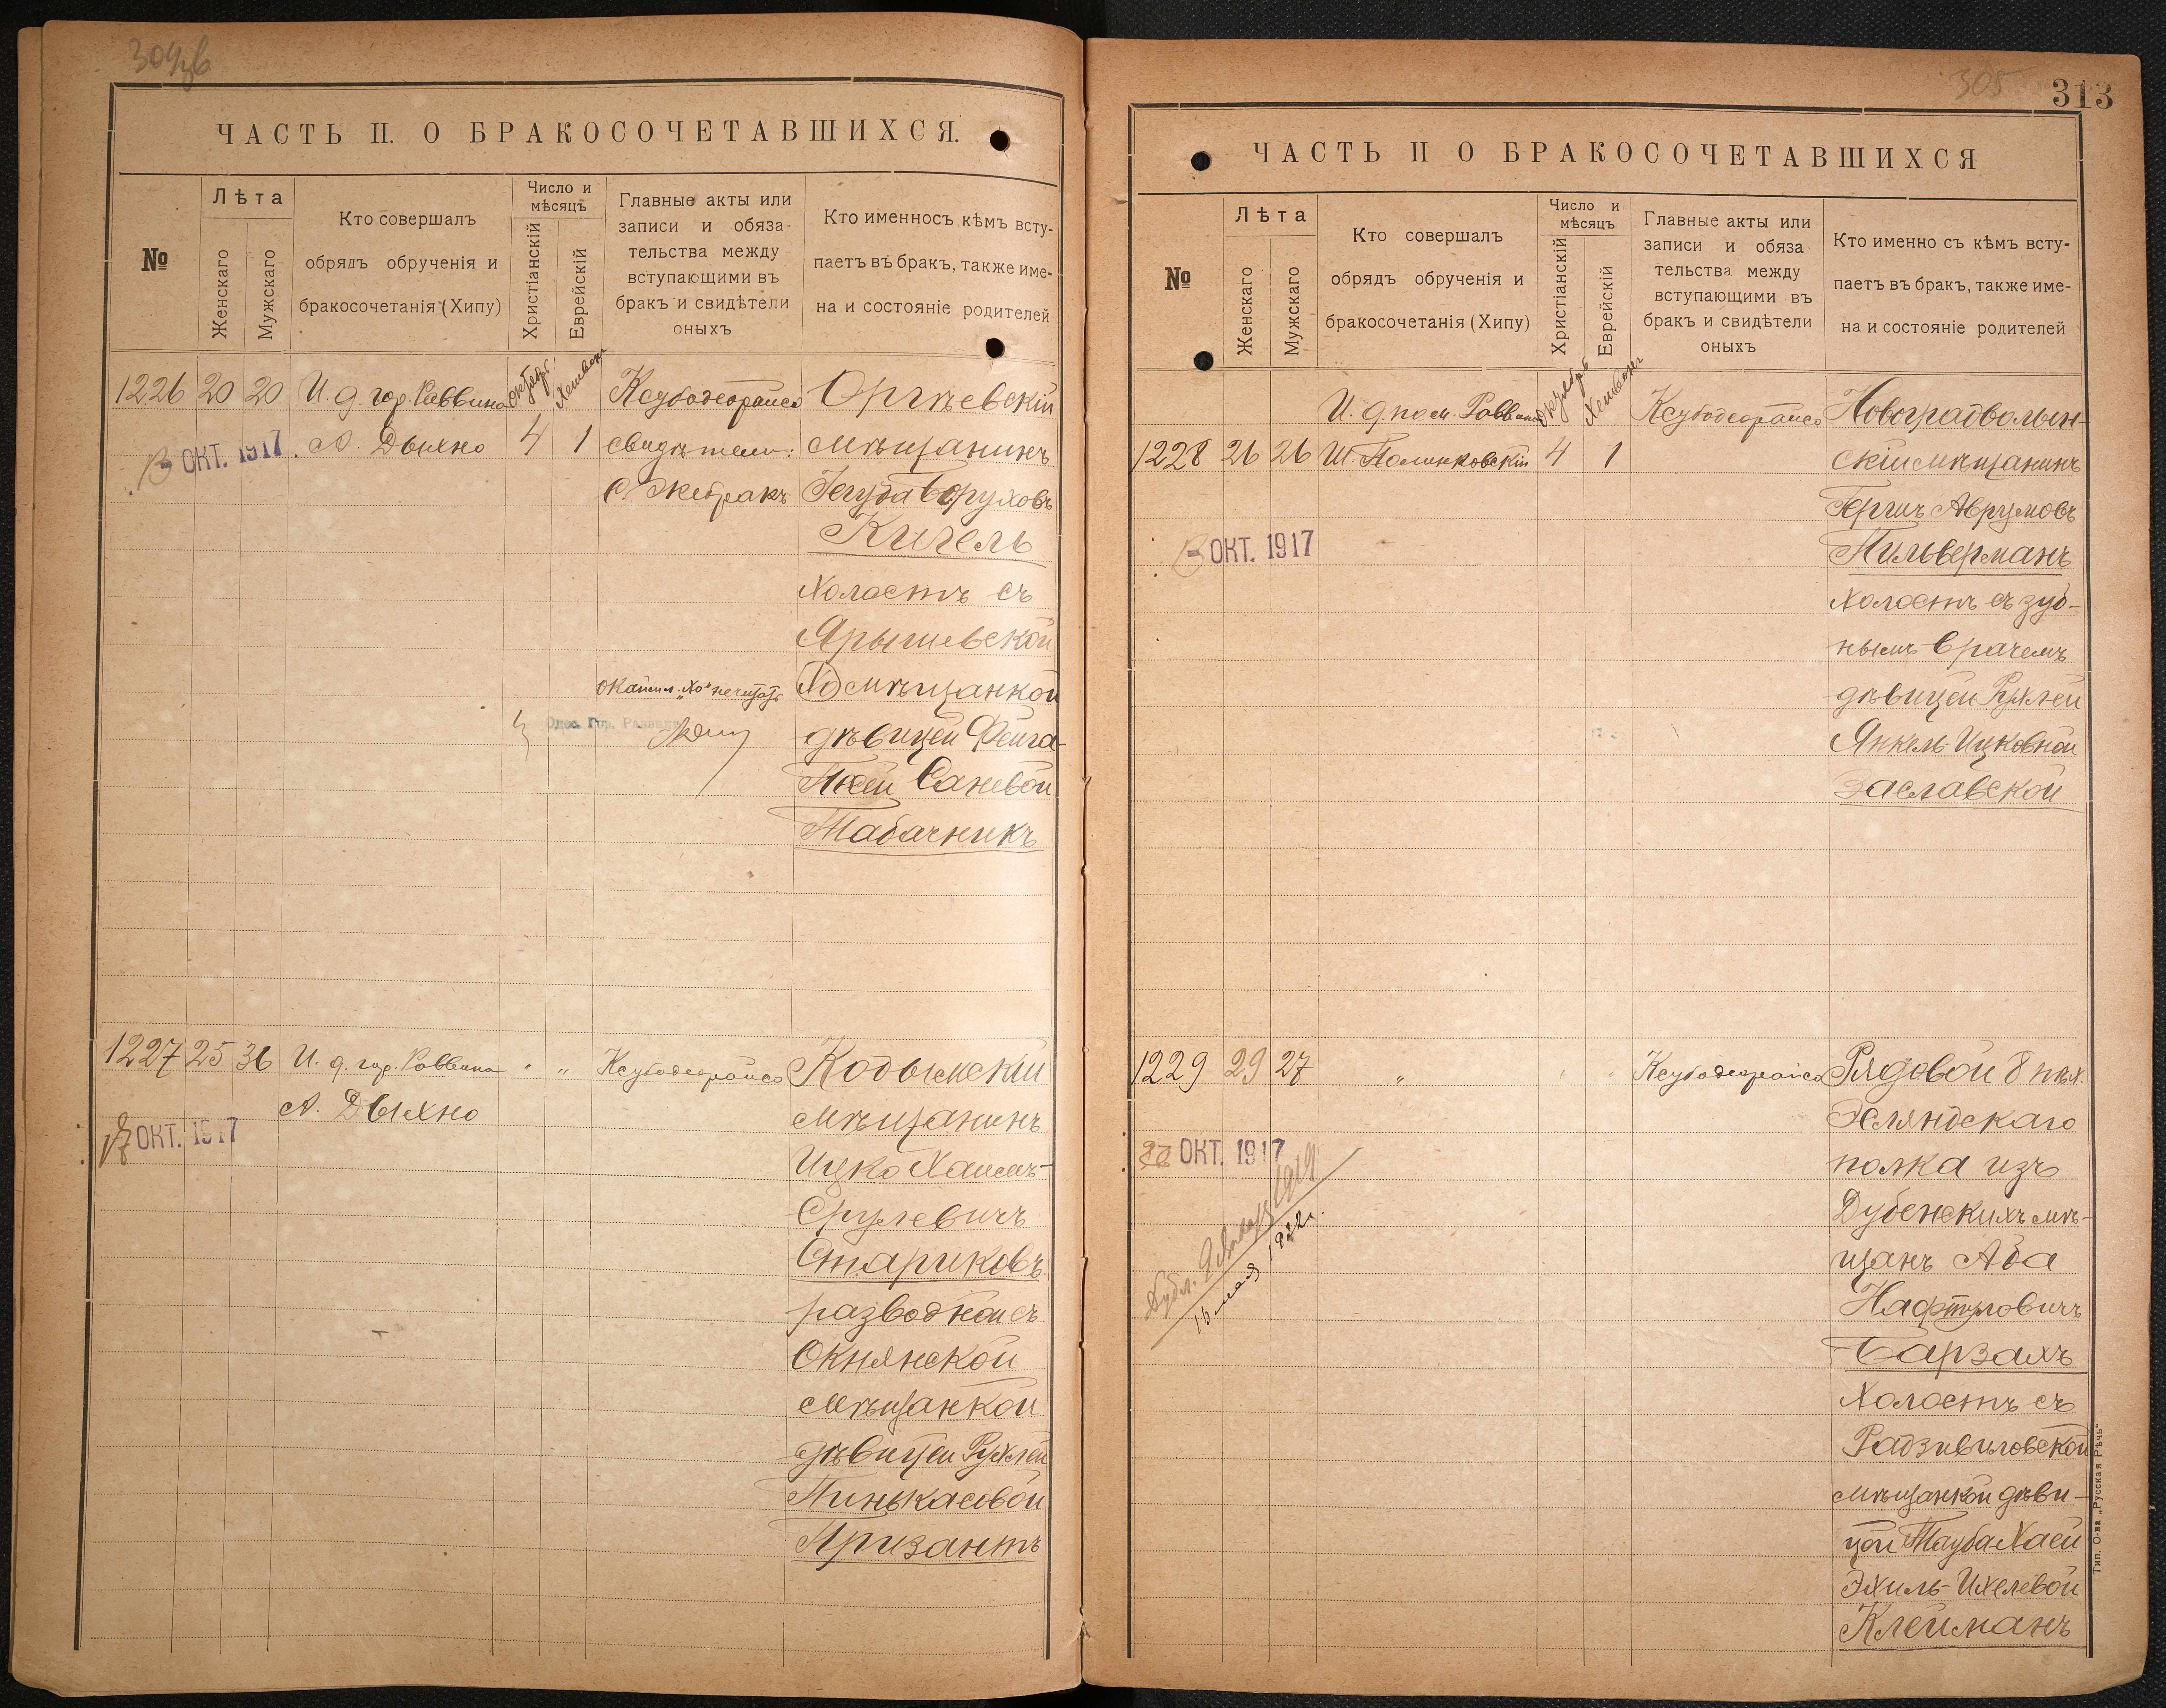 304 об
ЧАСТЬ II. О БРАКОСОЧЕТАВШИХСЯ.
№
Лѣта
Женскаго
Мужскаго
Кто совершалъ
обрядъ обрученія и
бракосочетанія (Хипу)
Число и
мѣсяцъ
Христіанскій
Еврейскій
Главные акты или
записи и обяза-
тельства между
вступающими въ
бракъ и свидѣтели
оныхъ
Кто именносъ кѣмъ всту-
паетъ въ бракъ, также име-
на и состояніе родителей
1226 20 20 И. д. гор. Раввина Октябрь Хешвонъ Ксубодеорайсо Оргѣевскій
13 ОКТ. 1917. А. Дыхно 4 1 свидѣтели: мѣщанинъ
С. Жебракъ Іегуда Боруховъ
Кигель
холостъ съ
Ярышевской
мѣщанкой
Одес. Гор. Раввинъ
дѣвицей Фейга-
Саневой
Табачникъ
1227 25 36 И. д. гор. Раввина " " Ксубодеорайсо Кодымскій
А. Дыхно мѣщанинъ
ОКТ. 1917
Ицко Хаимъ-
Срулевичъ
Стариковъ
разводной съ
Окнянской
мѣщанкой
дѣвицей Рухлей
Пинькасовой
Призантъ
305
313
ЧАСТЬ II О БРАКОСОЧЕТАВШИХСЯ
№
Лѣта
Женскаго
Мужскаго
Кто совершалъ
обрядъ обрученія и
бракосочетанія (Хипу)
Число и
мѣсяцъ
Христіанскій
Еврейскій
Главные акты или
записи и обяза
тельства между
вступающими въ
бракъ и свидѣтели
оныхъ
Кто именно съ кѣмъ всту-
паетъ въ бракъ, также име-
на и состояніе родителей
И. д. пом. Раввина Октябрь Хешвонъ Ксубодеорайсо Новоградволын-
1228 26 26 Ш. Полинковскій 4 1 скій мѣщанинъ
Гершъ Аврумовъ
13 ОКТ. 1917
Пильверманъ
холостъ съ зуб-
нымъ врачемъ
дѣвицей Рухлей
Янкель-Ицковной
Заславской
1229 29 27 " " " Ксубодеорайсо Рядовой 8 пѣх.
Эстляндскаго
ОКТ. 1917
полка изъ
Дубенскихъ мѣ-
щанъ Аба
Нафтуловичъ
Барзахъ
холостъ съ
Радзивиловской
мѣщанкой дѣви-
цей Тауба Хаей
Эхиль-Ихелевой
Клейманъ
Дубл. 9 Января 1919
16 мая 1922 г.
Тип. О-ва „Русская Рѣчь"